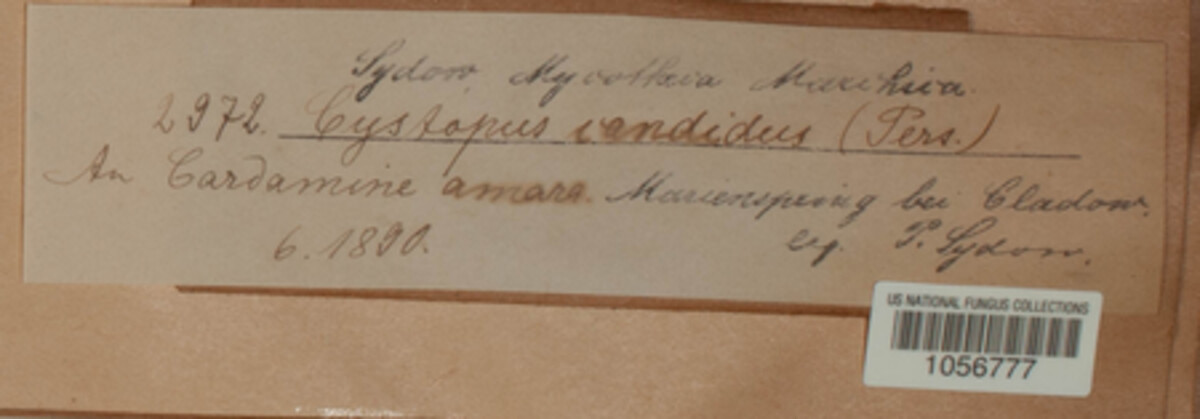 Sydow, Mycotheca Marchica.
2972. Cystopus candidus (Pers.)
An Cardamine amara. Marienspring bei Cladow.
6. 1890. leg. P. Sydow.
US NATIONAL FUNGUS COLLECTIONS
1056777